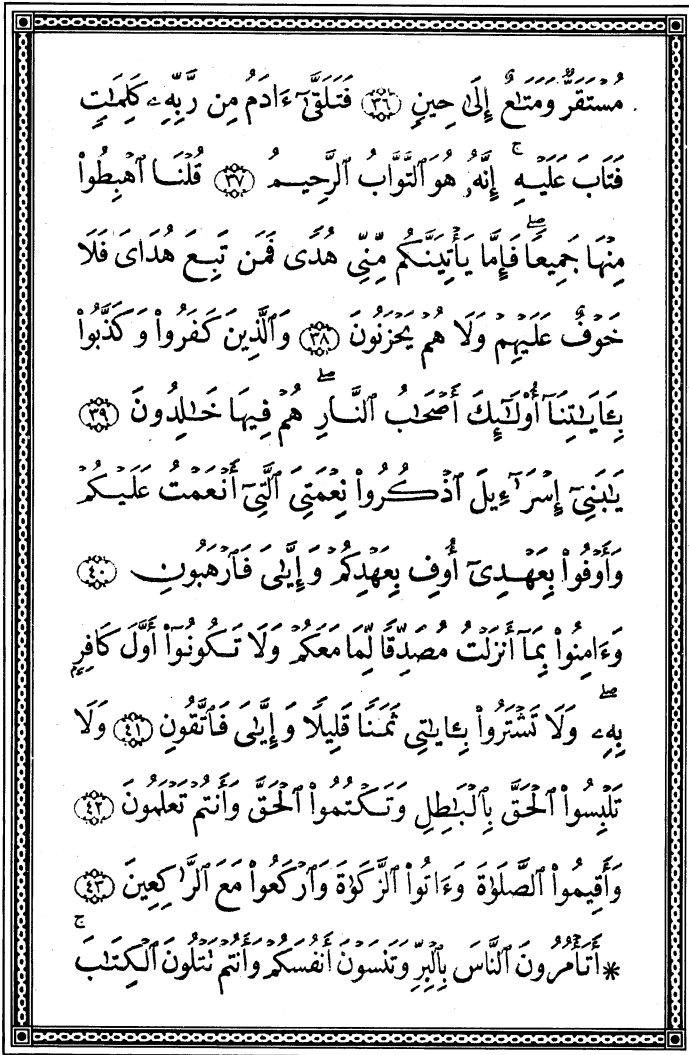 مُسْتَقَرٌّ وَمَتَٰعٌ إِلَىٰ حِينٍ ۝٣٦ فَتَلَقَّىٰٓ ءَادَمُ مِن رَّبِّهِۦ كَلِمَٰتٍ
فَتَابَ عَلَيْهِ ۚ إِنَّهُۥ هُوَ ٱلتَّوَّابُ ٱلرَّحِيمُ ۝٣٧ قُلْنَا ٱهْبِطُوا۟
مِنْهَا جَمِيعًا ۖ فَإِمَّا يَأْتِيَنَّكُم مِّنِّى هُدًى فَمَن تَبِعَ هُدَاىَ فَلَا
خَوْفٌ عَلَيْهِمْ وَلَا هُمْ يَحْزَنُونَ ۝٣٨ وَٱلَّذِينَ كَفَرُوا۟ وَكَذَّبُوا۟
بِـَٔايَٰتِنَآ أُو۟لَٰٓئِكَ أَصْحَٰبُ ٱلنَّارِ ۖ هُمْ فِيهَا خَٰلِدُونَ ۝٣٩
يَٰبَنِىٓ إِسْرَٰٓءِيلَ ٱذْكُرُوا۟ نِعْمَتِىَ ٱلَّتِىٓ أَنْعَمْتُ عَلَيْكُمْ
وَأَوْفُوا۟ بِعَهْدِىٓ أُوفِ بِعَهْدِكُمْ وَإِيَّٰىَ فَٱرْهَبُونِ ۝٤٠
وَءَامِنُوا۟ بِمَآ أَنزَلْتُ مُصَدِّقًا لِّمَا مَعَكُمْ وَلَا تَكُونُوٓا۟ أَوَّلَ كَافِرٍۭ
بِهِۦ ۖ وَلَا تَشْتَرُوا۟ بِـَٔايَٰتِى ثَمَنًا قَلِيلًا وَإِيَّٰىَ فَٱتَّقُونِ ۝٤١ وَلَا
تَلْبِسُوا۟ ٱلْحَقَّ بِٱلْبَٰطِلِ وَتَكْتُمُوا۟ ٱلْحَقَّ وَأَنتُمْ تَعْلَمُونَ ۝٤٢
وَأَقِيمُوا۟ ٱلصَّلَوٰةَ وَءَاتُوا۟ ٱلزَّكَوٰةَ وَٱرْكَعُوا۟ مَعَ ٱلرَّٰكِعِينَ ۝٤٣
* أَتَأْمُرُونَ ٱلنَّاسَ بِٱلْبِرِّ وَتَنسَوْنَ أَنفُسَكُمْ وَأَنتُمْ تَتْلُونَ ٱلْكِتَٰبَ ۚ